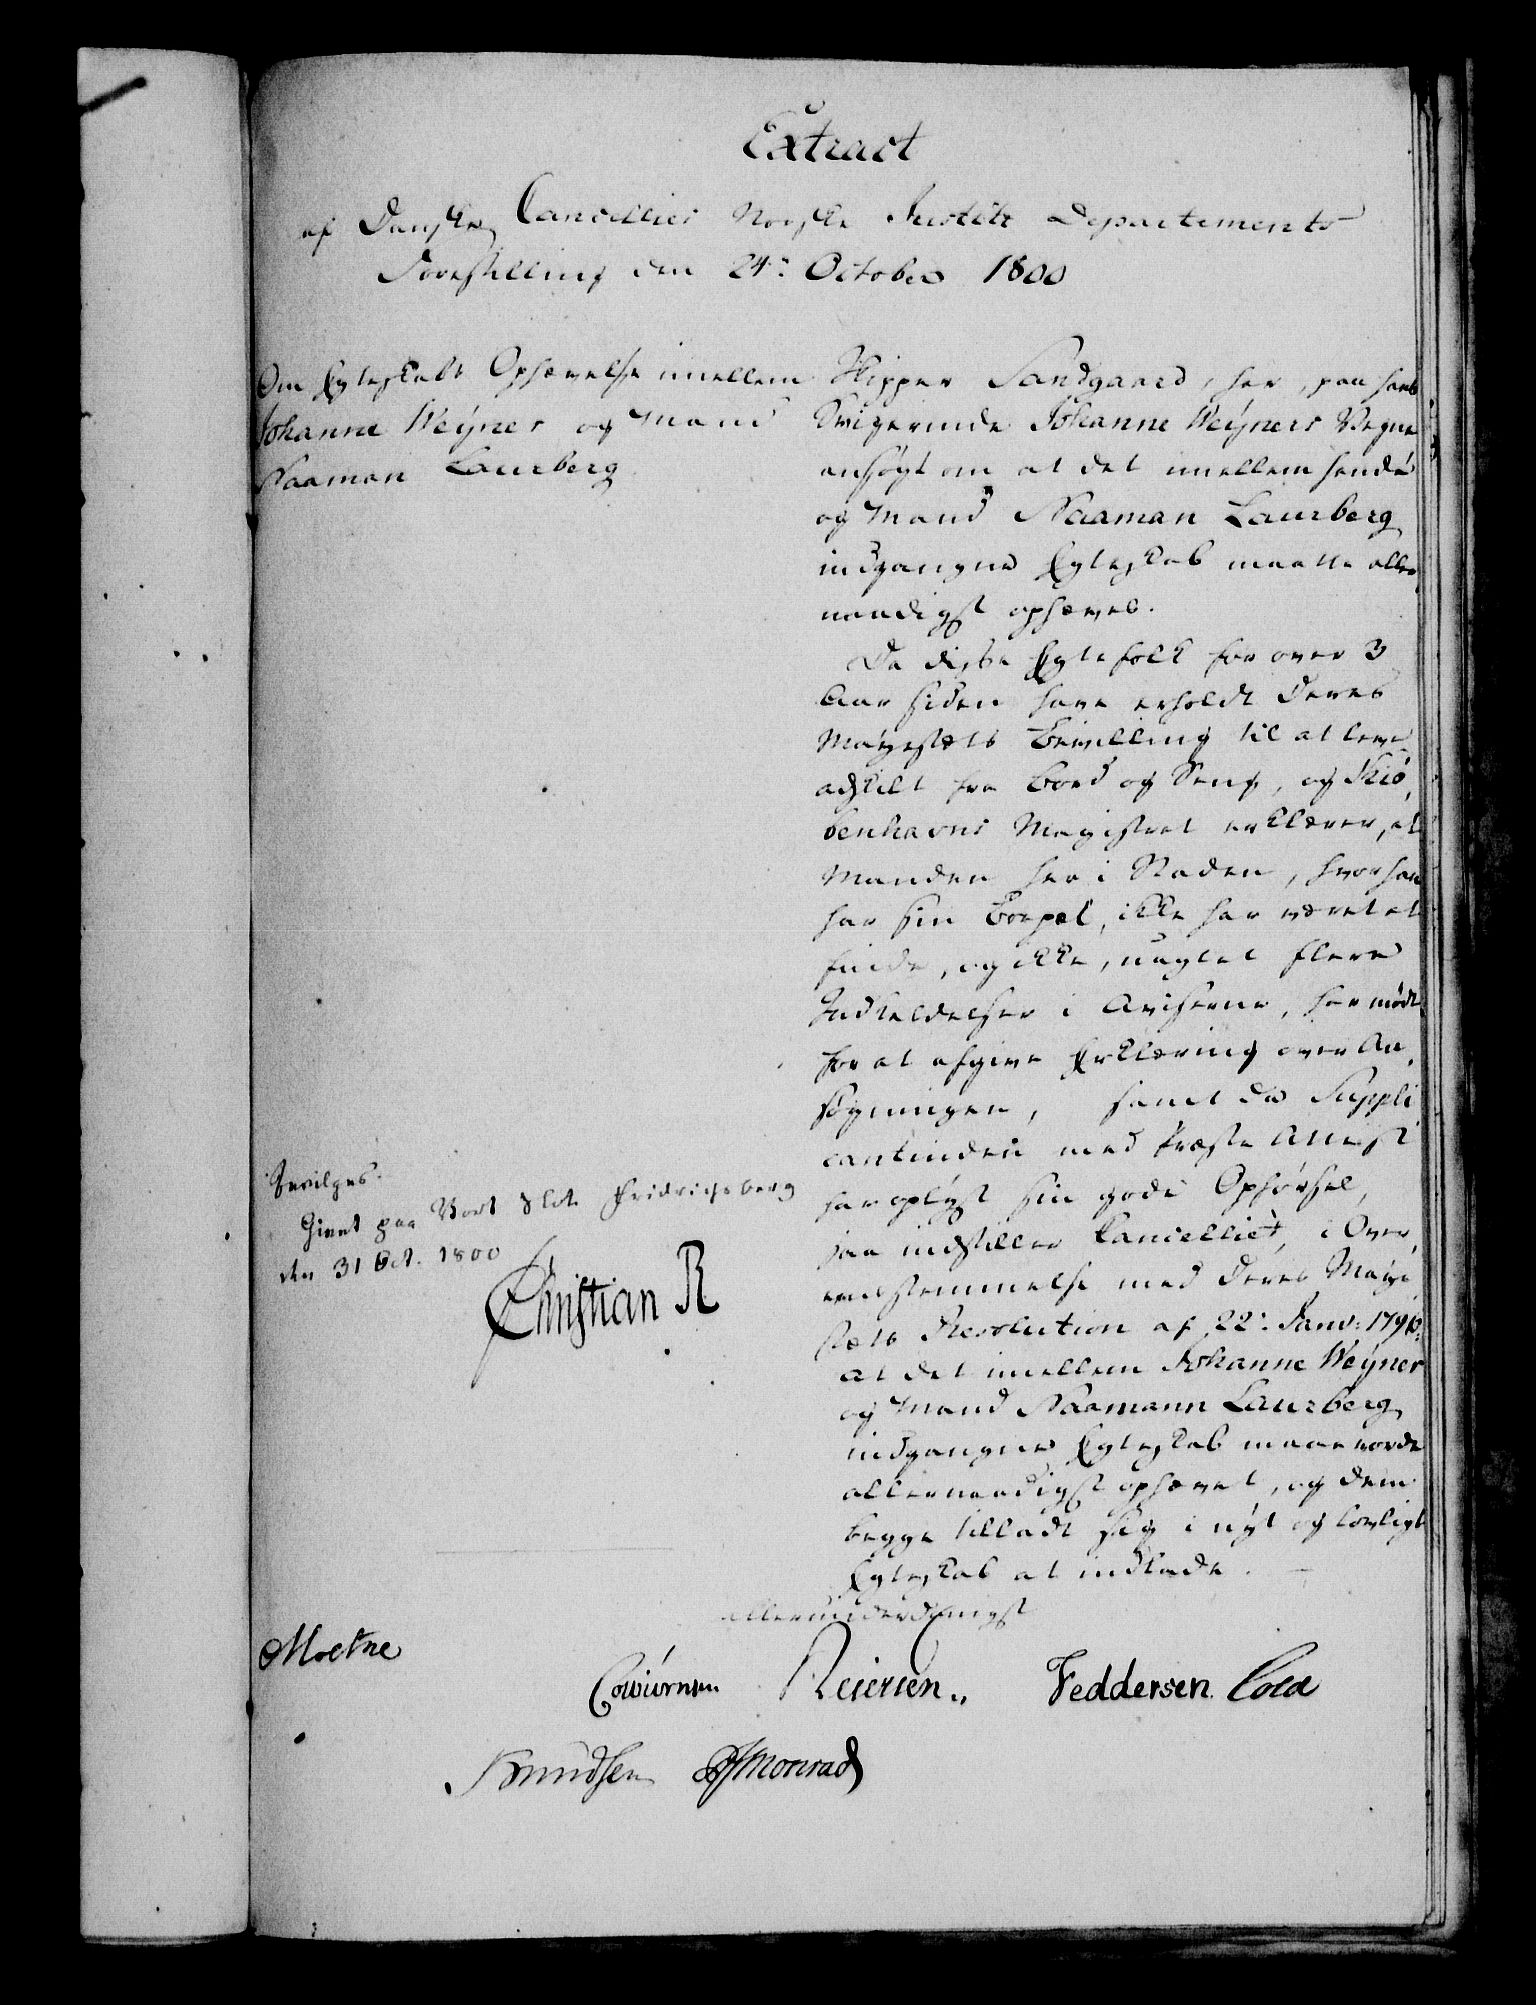 Extract
af Danske Cancellies Norske Justits Departements
Forestilling den 24de October 1800
Om Egteskabs Ophævelse imellem
Johanne Weÿner og Mand
Naaman Laurberg
Skipper Sandgaard, har, paa sin
Svigerinde Johanne Weÿners Vegne
ansøgt om at det imellem hende
og Mand Naaman Laurberg
indgangne Egteskab maatte aller
naadigst ophæves.
Da disse Egtefolk for over 3
Aar siden have erholdt Deres
Mayestæts Bevilling til at leve
adskilt fra Bord og Seng, og Kiø
benhavns Magistrat erklærer, at
Manden her i Staden, hvor han
har sin Bopæl, ikke har været at
finde, og ikke, uagtet flere
Indkaldelser i Aviserne, har mødt
for at afgive Erklæring over An
søgningen, samt da Suppli
cantinden med Præste Attest
har oplyst sin gode Opførsel,
saa indstiller Cancelliet, i Over
eensstemmelse med Deres Maye
stæts Resolution af 22de Janv: 1796:
at det imellem Johanne Weÿner
og Mand Naamann Laurberg
indgangne Egteskab maae vorde
allernaadigst ophævet, og dem
begge tilladt sig i nÿt og lovligt
Egteskab at indlade.
Bevilges.
Givet paa Vort Slot Fridrichsberg
den 31 Oct. 1800
Christian R
allerunderdanigst
Moltke
Colbiørnsen Reiersen. Feddersen. Cold
Knudsen Monrad